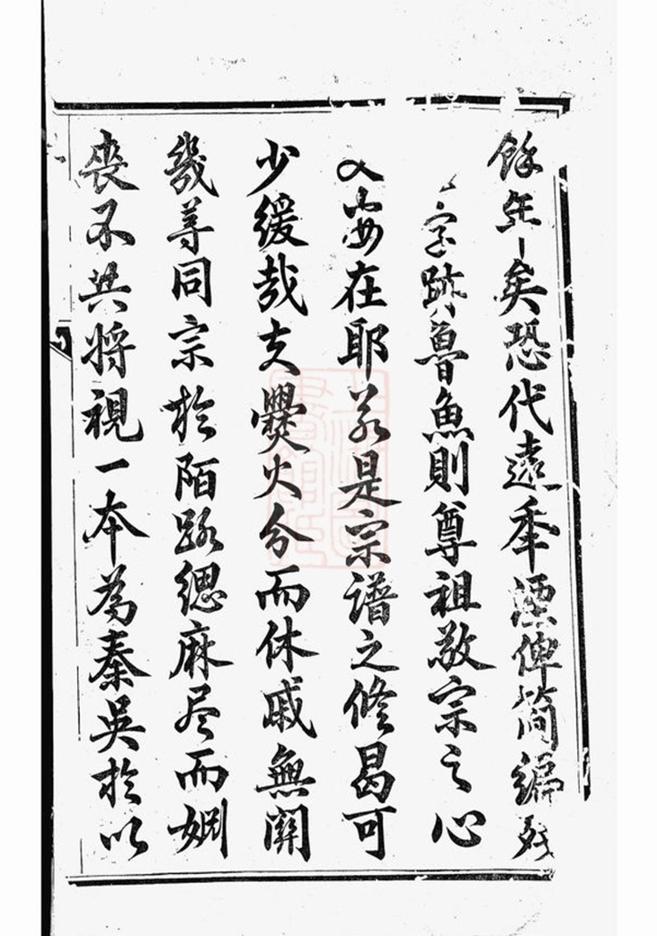 餘年矣恐代遠年湮俾簡編殘
字跡魯魚則尊祖敬宗之心
又安在耶若是宗譜之修曷可
少緩哉支爨火分而休戚無關
幾等同宗於陌路緦麻尽而婣
喪不共将視一本為秦吳於以